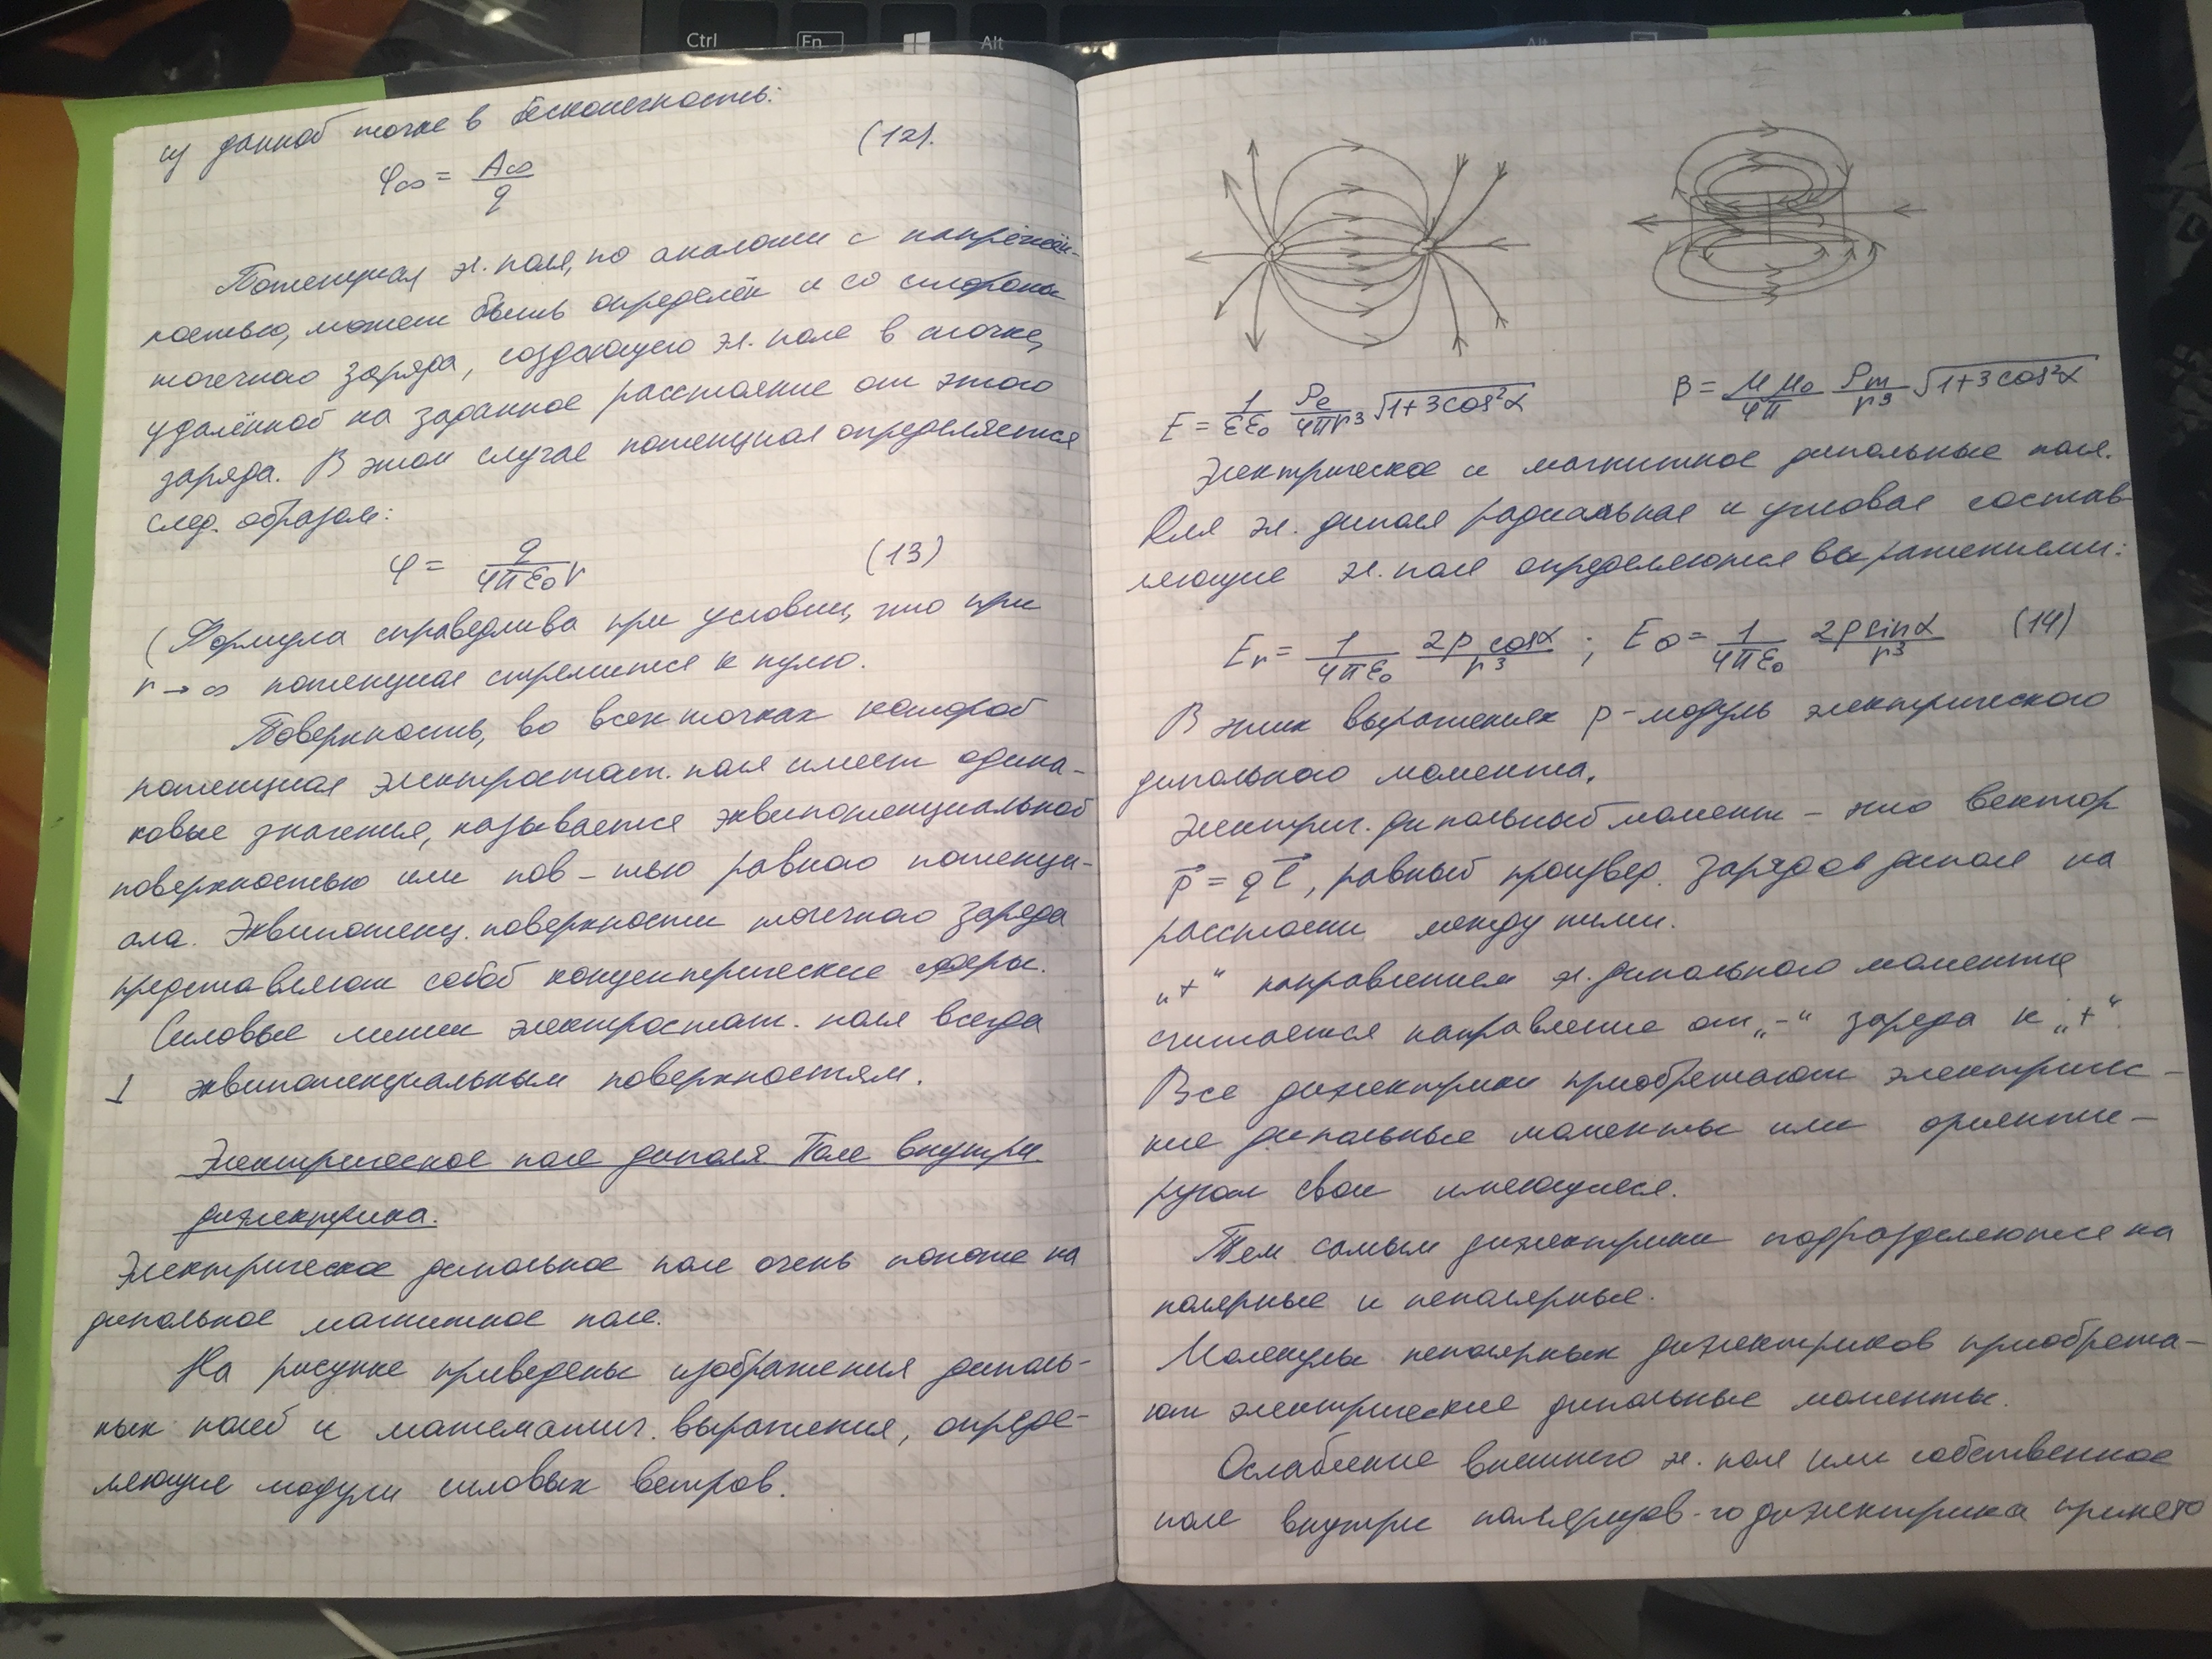 Ctrl
En
Alt
Alt
из данной точке в бесконечность:
φ∞ = A∞/q (12).
Потенциал эл. поля, по аналогии с напряжён-
ностью, может быть определён и со стороны
точечного заряда, создающего эл. поле в точке,
удалённой на заданное расстояние от этого
заряда. В этом случае потенциал определяется
след. образом:
φ = q/4πε₀r (13)
(Формула справедлива при условии, что при
r → ∞ потенциал стремится к нулю.
Поверхность, во всех точках которой
потенциал электростат. поля имеет одина-
ковые значения, называется эквипотенциальной
поверхностью или пов-тью равного потенци-
ала. Эквипотенц. поверхности точечного заряда
представляют собой концентрические сферы.
Силовые линии электростат. поля всегда
⊥ эквипотенциальным поверхностям.
Электрическое поле диполя. Поле внутри
диэлектрика.
Электрическое дипольное поле очень похоже на
дипольное магнитное поле.
На рисунке приведены изображения диполь-
ных полей и математич. выражения, опреде-
ляющие модули силовых векторов.
E = 1/εε₀ Pe/4πr³ √1+3cos²α
B = μμ₀/4π Pm/r³ √1+3cos²α
Электрическое и магнитное дипольные поля.
Для эл. диполя радиальная и угловая состав-
ляющие эл. поля определяются выражениями:
Er = 1/4πε₀ 2p cosα/r³ ; EΘ = 1/4πε₀ 2p sinα/r³ (14)
В этих выражениях p - модуль электрического
дипольного момента.
Электрич. дипольный момент - это вектор
p⃗ = ql⃗, равный произвед. зарядов диполя на
расстояни между ними.
„+“ направлением эл. дипольного момента
считается направление от „-“ заряда к „+“.
Все диэлектрики приобретают электричес-
кие дипольные моменты или ориенти-
руют свои имеющиеся.
Тем самым диэлектрики подразделяются на
полярные и неполярные.
Молекулы неполярных диэлектриков приобрета-
ют электрические дипольные моменты.
Ослабление внешнего эл. поля или собственное
поле внутри поляризов-го диэлектрика принято